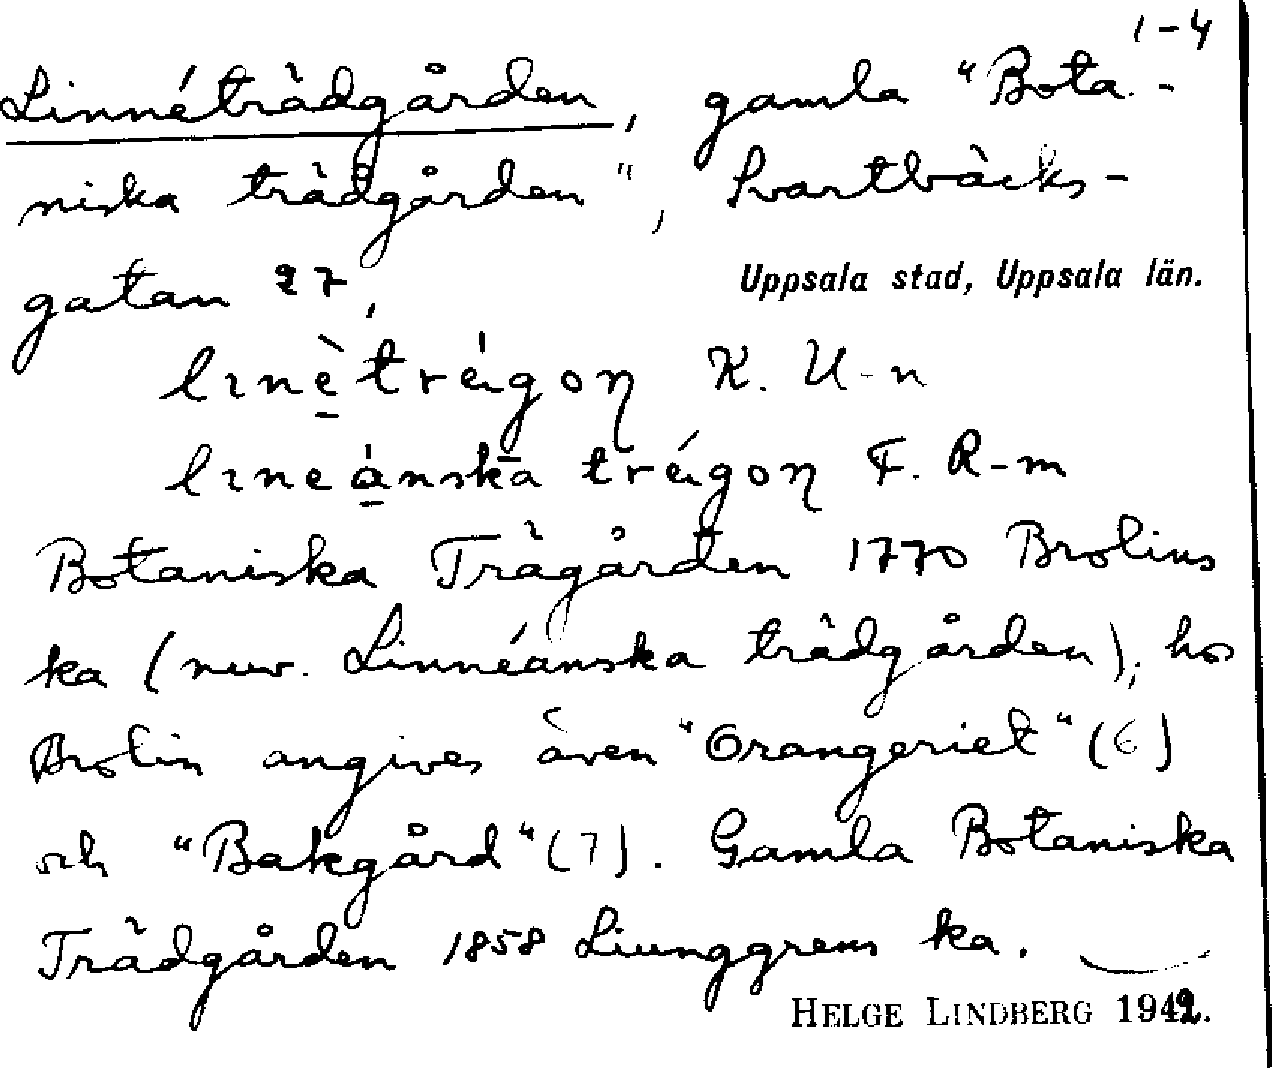 1-4
Linnéträdgården, gamla "Bota-
niska trädgården", Svartbäcks-
gatan 27,
Uppsala stad, Uppsala län.
lınè̱trégoꞃ K. U-n
lıneá̱nska trégoꞃ F. R-m
Botaniska Trägården 1770 Brolins
ka (nuv. Linnéanska trädgården); hos
Brolin angives även "Orangeriet" (6)
och "Bakgård" (7). Gamla Botaniska
Trädgården 1858 Liunggrens ka.
HELGE LINDBERG 1942.